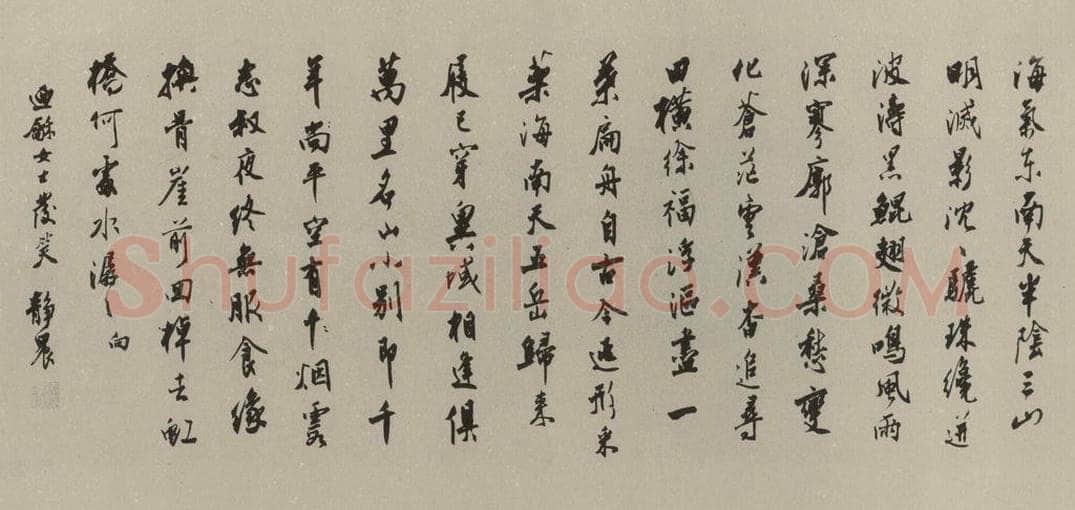 海氣東南天半陰三山
明滅影沈〻驪珠纔迸
波濤黑鯤翅微鳴風雨
深寥廓滄桑愁變
化蒼茫雲漢杳追尋
田橫徐福浮漚盡一
葉扁舟自古今遁形采
藥海南天五岳歸來
屐已穿異域相逢俱
萬里名山小別即千
年尚平空有烟霞
志叔夜終無服食緣
換骨崖前回棹去虹
橋何處水潺〻向
女士發笑 靜農
Shufaziliao.COM